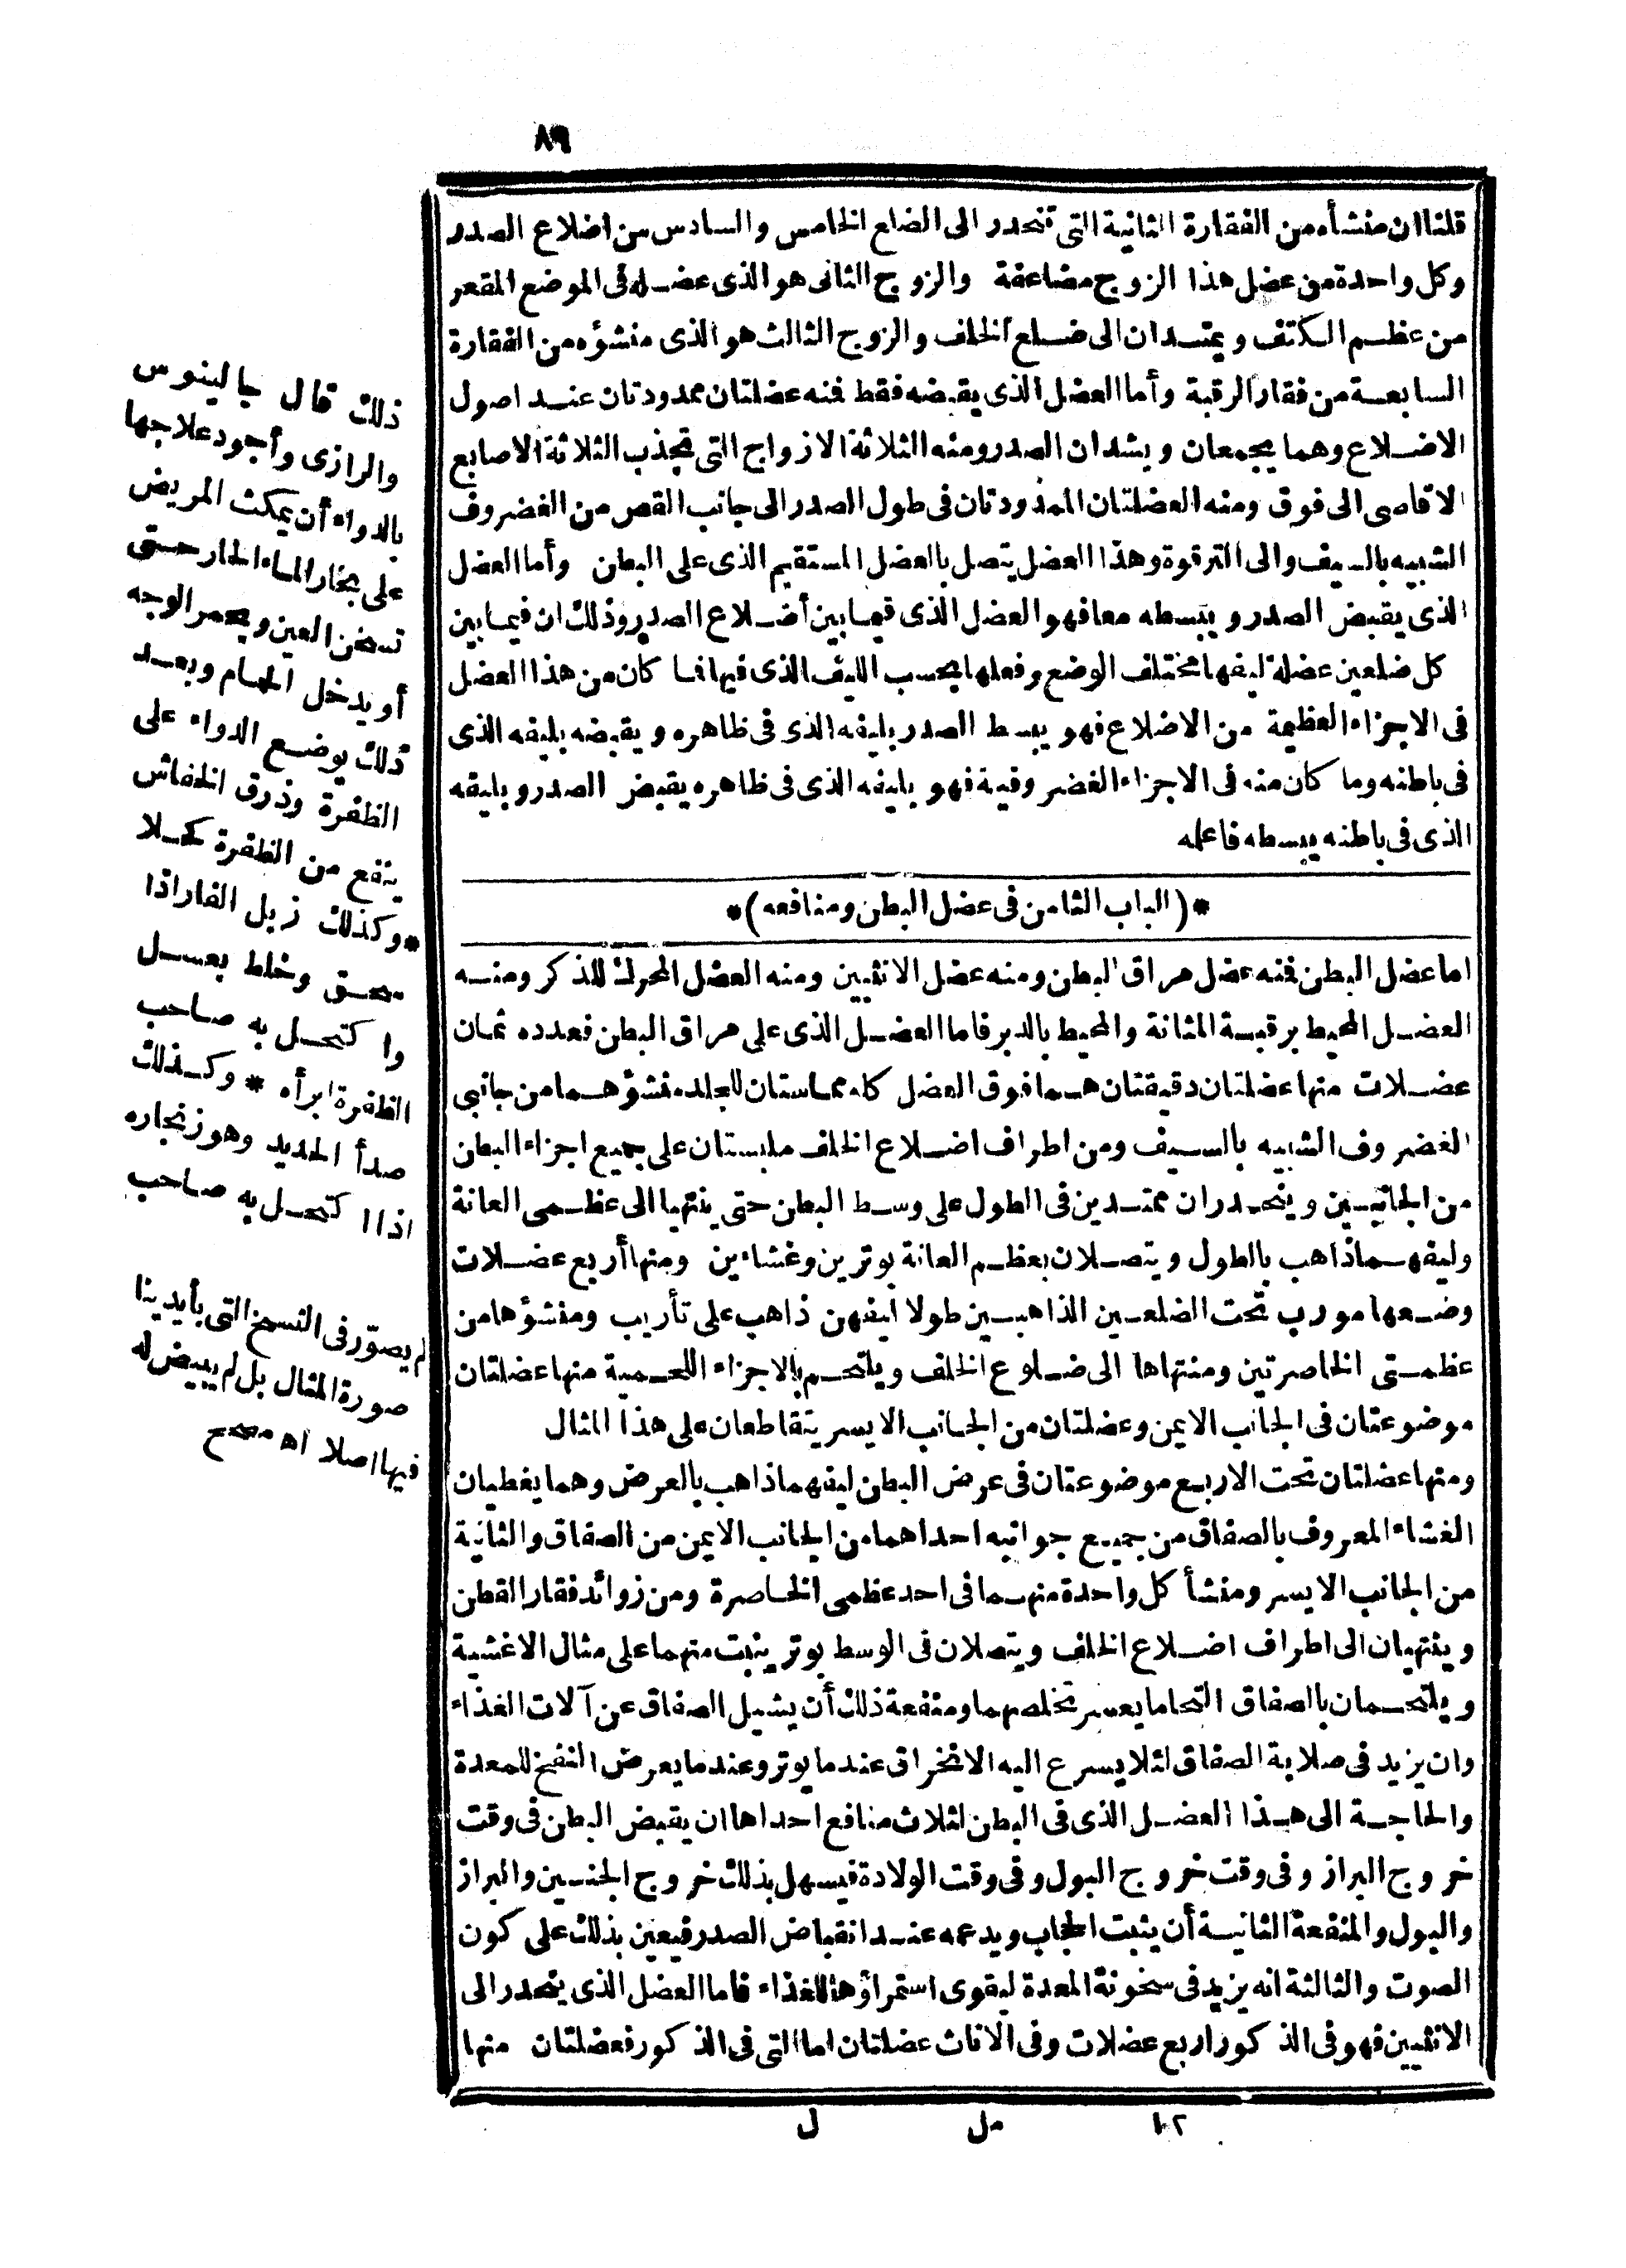 ٨٩
قلنا ان منشأه من الفقارة الثانية التى تنحدر الى الضلع الخامس والسادس من اضلاع الصدر
وكل واحدة من عضل هذا الزوج مضاعفة والزوج الثانى هو الذى عضله فى الموضع المقعر
من عظم الكتف ويمتدان الى ضلع الخلف والزوج الثالث هو الذى منشؤه من الفقارة
السابعة من فقار الرقبة وأما العضل الذى يقبضه فقط فنه عضلتان ممدودتان عند اصول
الاضلاع وهما يجمعان ويشدان الصدر ومنه الثلاثة الازواج التى تجذب الثلاثة الاصابع
الاقاصى الى فوق ومنه العضلتان الممدودتان فى طول الصدر الى جانب القص من الغضروف
الشبيه بالسيف والى الترقوة وهذا العضل يتصل بالعضل المستقيم الذى على البطن وأما العضل
الذى يقبض الصدر ويبسطه معا فهو العضل الذى فيما بين أضلاع الصدر وذلك ان فيما بين
كل ضلعين عضلة ليفها مختلف الوضع وفعلها بحسب الليف الذى فيها فما كان من هذا العضل
فى الاجزاء العظمية من الاضلاع فهو يبسط الصدر بليفه الذى فى ظاهره ويقبضه بليفه الذى
فى باطنه وما كان منه فى الاجزاء الغضروفية فهو بليفه الذى فى ظاهره يقبض الصدر وبليفه
الذى فى باطنه يبسطه فاعلمه
*(الباب الثامن فى عضل البطن ومنافعه)*
اما عضل البطن فنه عضل مراق البطن ومنه عضل الانثيين ومنه العضل المحرك للذكر ومنه
العضل المحيط برقبة المثانة والمحيط بالدبر فاما العضل الذى على مراق البطن فعدده ثمان
عضلات منها عضلتان دقيقتان هما فوق العضل كله مماستان للجلد منشؤهما من جانبى
الغضروف الشبيه بالسيف ومن اطراف اضلاع الخلف ملبستان على جميع اجزاء البطن
من الجانبين وينحدران ممتدين فى الطول على وسط البطن حتى ينتهيا الى عظمى العانة
وليفهما ذاهب بالطول ويتصلان بعظم العانة بوترين وغشاءين ومنها أربع عضلات
وضعها مورب تحت الضلعين الذاهبين طولا ليفهن ذاهب على تأريب ومنشؤها من
عظمتى الخاصرتين ومنتهاها الى ضلوع الخلف ويلتحم بالاجزاء اللحمية منها عضلتان
موضوعتان فى الجانب الايمن وعضلتان من الجانب الايسر يتقاطعان على هذا المثال
ومنها عضلتان تحت الاربع موضوعتان فى عرض البطن ليفهما ذاهب بالعرض وهما يغطيان
الغشاء المعروف بالصفاق من جميع جوانبه احداهما من الجانب الايمن من الصفاق والثانية
من الجانب الايسر ومنشأ كل واحدة منهما فى احد عظمى الخاصرة ومن زوائد فقار القطن
وينتهيان الى اطراف اضلاع الخلف ويتصلان فى الوسط بوتر ينبت منهما على مثال الاغشية
ويلتحمان بالصفاق التحاما يعسر تخلصهما ومنفعة ذلك أن يشيل الصفاق عن آلات الغذاء
وان يزيد فى صلابة الصفاق لئلا يسرع اليه الانخراق عند ما يوتر وعند ما يعرض النفخ للمعدة
والحاجة الى هذا العضل الذى فى البطن لثلاث منافع احداها ان يقبض البطن فى وقت
خروج البراز وفى وقت خروج البول وفى وقت الولادة فيسهل بذلك خروج الجنين والبراز
والبول والمنفعة الثانية أن يثبت الحجاب ويدعمه عند انقباض الصدر فيعين بذلك على كون
الصوت والثالثة انه يزيد فى سخونة المعدة ليقوى استمراؤها للغذاء فاما العضل الذى ينحدر الى
الانثيين فهو فى الذكور اربع عضلات وفى الاناث عضلتان اما التى فى الذكور فعضلتان منها
١٢ مل ل
ذلك قال جالينوس
والرازى وأجود علاجها
بالدواء أن يمكث المريض
على بخار الماء الحار حتى
تسخن العين ويحمر الوجه
أو يدخل الحمام وبعد
ذلك يوضع الدواء على
الظفرة وذرق الخفاش
ينفع من الظفرة كحلا
*وكذلك زبل الفار اذا
سحق وخلط بعسل
واكتحل به صاحب
الظفرة ابرأه * وكذلك
صدأ الحديد وهو زنجاره
اذا اكتحل به صاحب
لم يصوّر فى النسخ التى بأيدينا
صورة المثال بل لم يبيض له
فيها اصلا اه مصحح